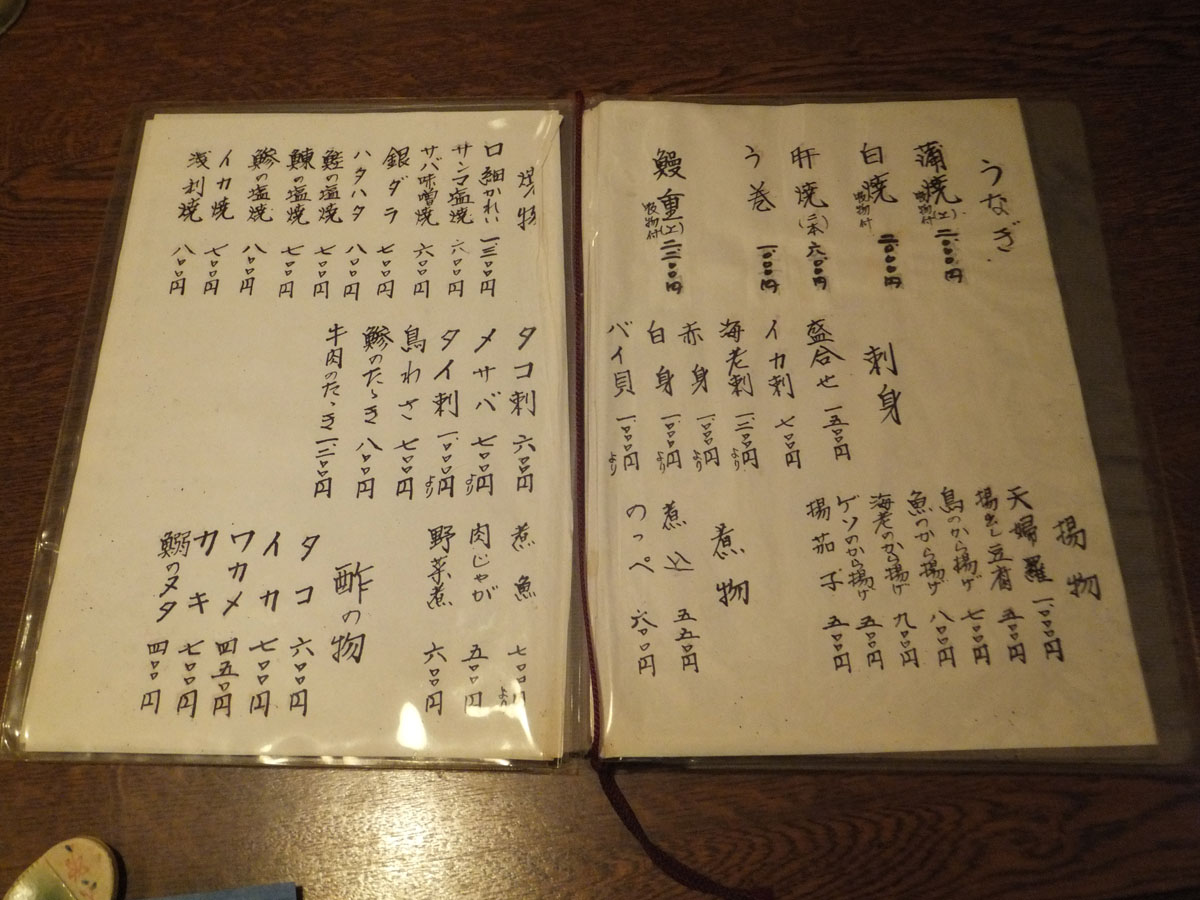 うなぎ
蒲焼(上) 吸物付 二、〇〇〇円
白焼 吸物付 二、〇〇〇円
肝焼(二本) 六〇〇円
う巻 一、〇〇〇円
鰻重(上) 吸物付
刺身
盛合せ 一、五〇〇円
イカ刺 七〇〇円
海老刺 円より
赤身 一、〇〇〇円より
白身 一、〇〇〇円より
バイ貝 一、〇〇〇円より
揚物
天婦羅 一、〇〇〇円
揚出し豆腐 五〇〇円
鳥のから揚げ 七〇〇円
魚のから揚げ 八〇〇円
海老のから揚げ 九〇〇円
ゲソのから揚げ 五〇〇円
揚茄子 五〇〇円
煮物
煮込 五五〇円
のっぺ 六〇〇円
焼物
口細かれい
サンマ塩焼 六〇〇円
サバ味噌焼 六〇〇円
銀ダラ 七〇〇円
ハタハタ 八〇〇円
鮭の塩焼 七〇〇円
鰊の塩焼 七〇〇円
鯵の塩焼 八〇〇円
イカ焼 七〇〇円
浅利焼 八〇〇円
タコ刺 六〇〇円
メサバ 七〇〇円より
タイ刺 一、〇〇〇円より
鳥わさ 七〇〇円
鯵のたゝき 八〇〇円
牛肉のたゝき
煮魚 七〇〇円より
肉じゃが 五〇〇円
野菜煮 六〇〇円
酢の物
タコ 六〇〇円
イカ 七〇〇円
ワカメ 四五〇円
カキ 七〇〇円
鰯のヌタ 四〇〇円